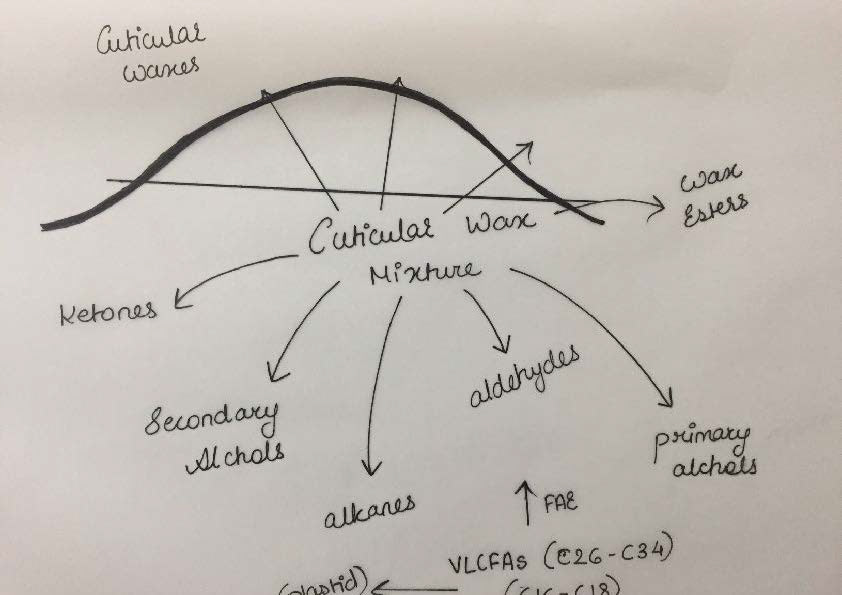 Cuticular
waxes
Wax
Esters
Cuticular Wax
Mixture
Ketones
aldehydes
Secondary
Alchols
primary
alchols
alkanes
FAE
VLCFAs (C26-C34)
(plastid)
(C16-C18)